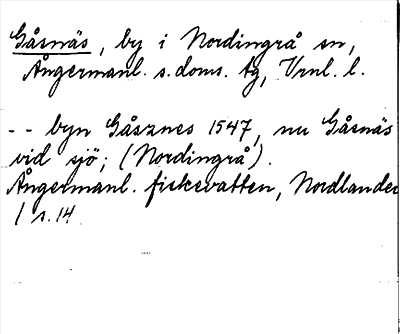 Gåsnäs, by i Nordingrå sn,
Ångermanl. s. doms. tg, Vrnl. l.
-- byn Gåsznes 1547, nu Gåsnäs
vid sjö; (Nordingrå).
Ångermanl. fiskevatten, Nordlander
1 s. 14.